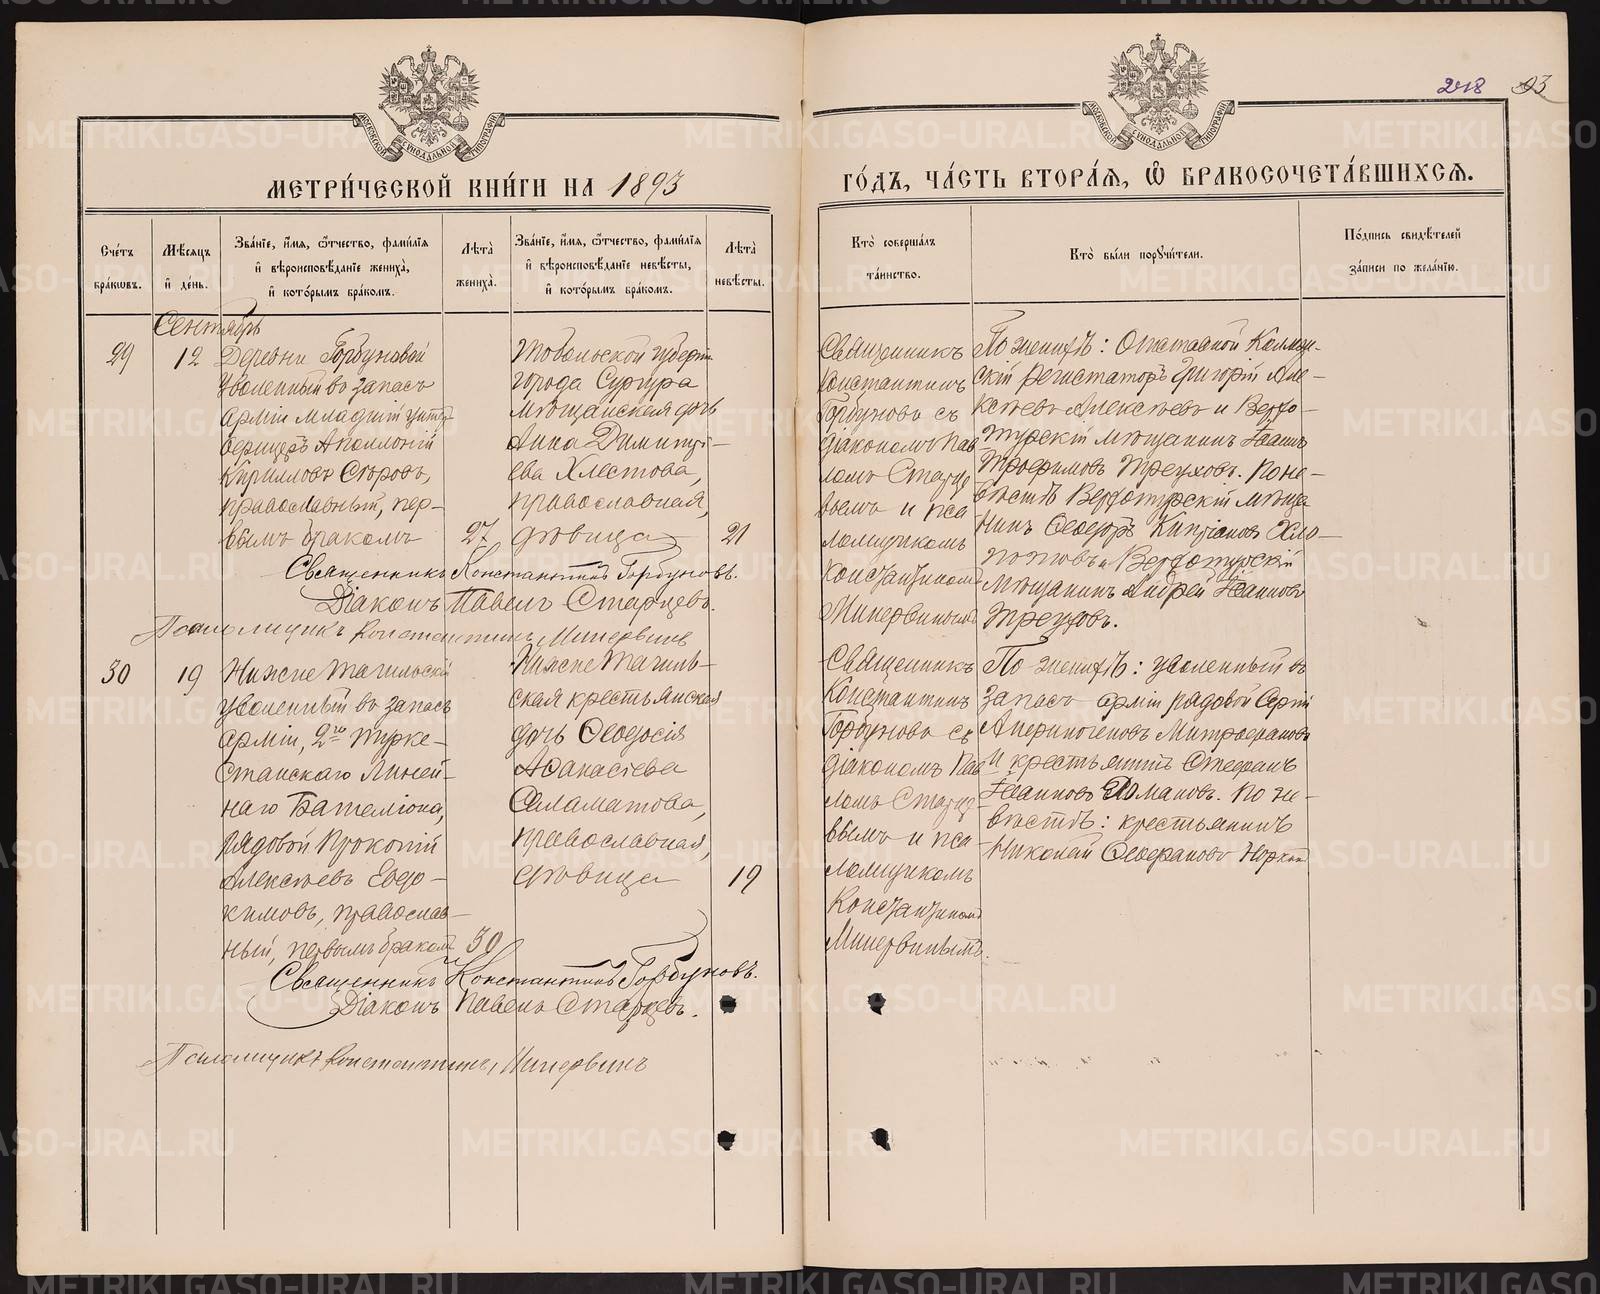 248 93
МОСКОВСКОЙ СѴНОДАЛЬНОЙ ТИПОГРАФІИ
МОСКОВСКОЙ СѴНОДАЛЬНОЙ ТИПОГРАФІИ
МЕТРИ́ЧЕСКОЙ КНИ́ГИ НА 1893
ГО́ДЪ, ЧА́СТЬ ВТОРА́Я, Ѡ БРАКОСОЧЕТА́ВШИХСЯ.
Сче́тъ
бра́кѡвъ.
Мѣ́сяцъ
и҆ де́нь.
Зва́нїе, и҆́мя, ѻ҆́тчество, фами́лїя
и҆ вѣроисповѣ́данїе жениха̀,
и҆ кото́рымъ бра́комъ.
Лѣта̀
жениха̀.
Зва́нїе, и҆́мя, ѻ҆́тчество, фами́лїя
и҆ вѣроисповѣ́данїе невѣ́сты,
и҆ кото́рымъ бра́комъ.
Лѣта̀
невѣ́сты.
Кто̀ соверша́лъ
та́инство.
Кто̀ бы́ли порꙋчи́тели.
По́дпись свидѣ́телей
за́писи по жела́нїю.
Сентябрь
29
12
Деревни Горбуновой
уволенный въ запасъ
арміи младшій унтеръ
офицеръ Аполлоній
Кирилловъ Сѣровъ,
православный, пер-
вымъ бракомъ
27
Тобольской губерніи
города Сургута
мѣщанская дочь
Анна Димитрі-
ева Хлестова,
православная,
дѣвица
21
Священникъ
Константинъ
Горбуновъ съ
діакономъ Пав
ломъ Старце
вымъ и пса
ломщикомъ
Константиномъ
Минервинымъ
По женихѣ: Отставной Коллеж-
скій регистаторъ Григорій Але-
ксѣевъ Алексѣевъ и Верхо-
турскій мѣщанинъ Іванъ
Трофимовъ Треуховъ. По не-
вѣстѣ Верхотурскій мѣща
нинъ Ѳеодоръ Кипріановъ Хло-
потовъ и Верхотурскій
мѣщанинъ Андрей Іванновъ
Треуховъ.
Священникъ Константинъ Горбуновъ.
Діаконъ Павелъ Старцевъ.
Псаломщикъ Константинъ Минервинъ
30
19
Нижне Тагильскій
уволенный въ запасъ
арміи, 2го Турке-
станскаго Линей-
наго Баталіона,
рядовой Прокопій
Алексѣевъ Евдо-
кимовъ, православ-
ный, первымъ бракомъ
30
Нижне Тагиль-
ская крестьянская
дочь Ѳеодосія
Аѳанасіева
Саламатова,
православная,
дѣвица
19
Священникъ
Константинъ
Горбуновъ съ
діакономъ Пав
ломъ Старце-
вымъ и пса-
ломщикомъ
Константиномъ
Минервинымъ.
По женихѣ: уволенный въ
запасъ арміи рядовой Сергій
Аѳиногеновъ Митрофановъ
и крестьянинъ Стефанъ
Іванновъ Романовъ. По не-
вѣстѣ: крестьянинъ
Николай
Священникъ Константинъ Горбуновъ.
Діаконъ Павелъ Старцевъ.
Псаломщикъ Константинъ Минервинъ
METRIKI.GASO-URAL.RU